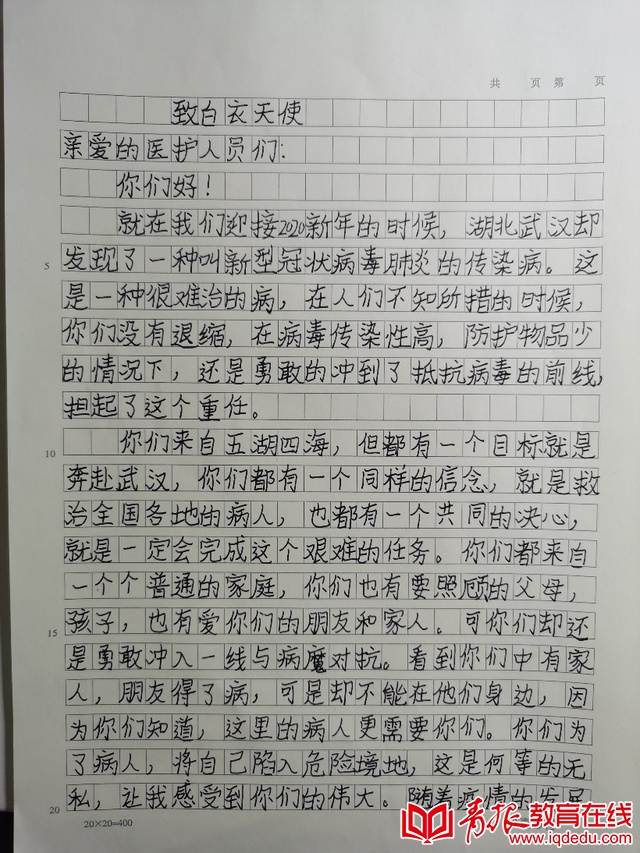 共 页 第 页
致白衣天使
亲爱的医护人员们:
你们好!
就在我们迎接2020新年的时候,湖北武汉却
5 发现了一种叫新型冠状病毒肺炎的传染病。这
是一种很难治的病,在人们不知所措的时候,
你们没有退缩,在病毒传染性高,防护物品少
的情况下,还是勇敢的冲到了抵抗病毒的前线,
担起了这个重任。
10 你们来自五湖四海,但都有一个目标就是
奔赴武汉,你们都有一个同样的信念,就是救
治全国各地的病人,也都有一个共同的决心,
就是一定会完成这个艰难的任务。你们都来自
一个个普通的家庭,你们也有要照顾的父母,
15 孩子,也有爱你们的朋友和家人。可你们却还
是勇敢冲入一线与病魔对抗。看到你们中有家
人,朋友得了病,可是却不能在他们身边,因
为你们知道,这里的病人更需要你们。你们为
了病人,将自己陷入危险境地,这是何等的无
20 私,让我感受到你们的伟大。随着疫情的发展
20×20=400
青报教育在线
www.iqdedu.com